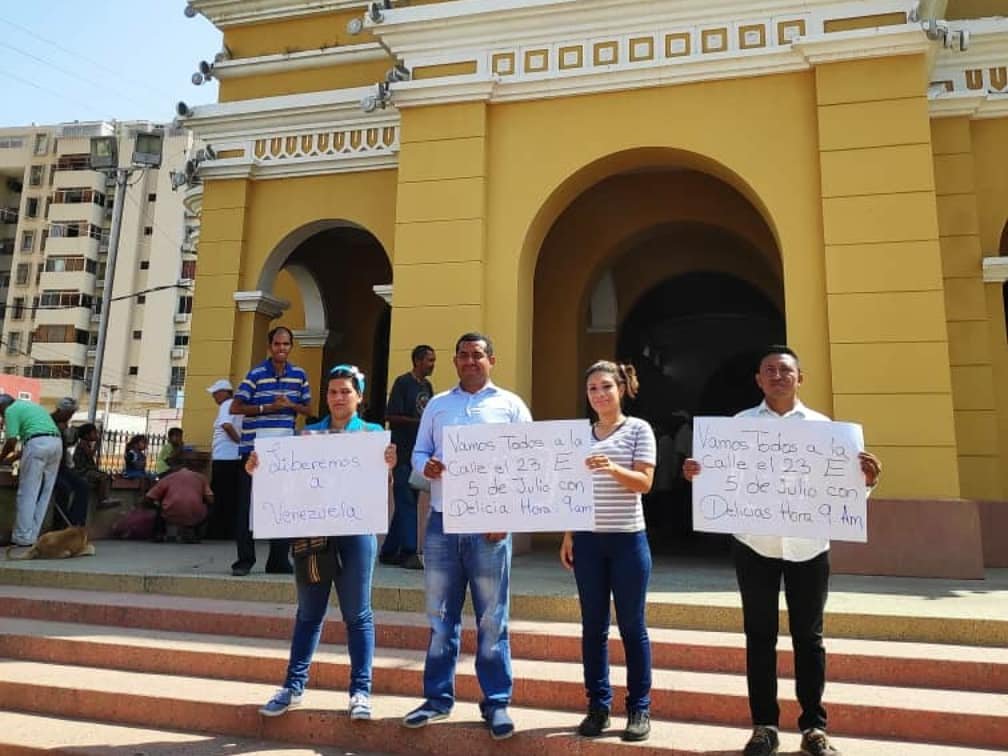 Liberemos
a
Venezuela
Vamos Todos a la
Calle el 23 E
5 de Julio con
Delicia Hora: 9am
Vamos Todos a la
Calle el 23 E
5 de Julio con
Delicias Hora 9 Am